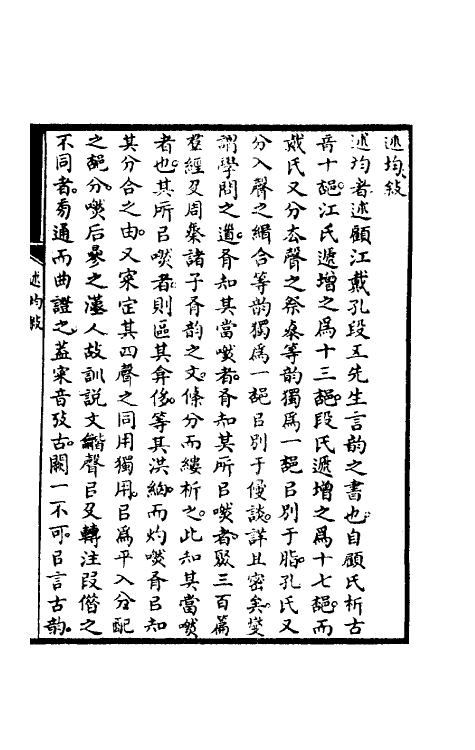 述均敘
述均者述顧江戴孔段五先生言韵之書也自顧氏析古
音十部江氏遞增之爲十三部段氏遞增之爲十七部而
戴氏又分去聲之祭泰等韵獨爲一部㠯別于脂孔氏又
分入聲之緝合等韵獨爲一部㠯別于侵談詳且密矣燮
謂學問之道有知其當嘫者有知其所㠯嘫者取三百篇
羣經及周秦諸子有韵之文條分而縷析之此知其當嘫
者也其所㠯嘫者則區其弇侈等其洪細而灼嘫有㠯知
其分合之由又宷定其四聲之同用獨用㠯爲平入分配
之部分嘫后參之漢人故訓說文龤聲㠯及轉注叚借之
不同者旁通而曲證之蓋宷音攷古闕一不可㠯言古韵
述均敘